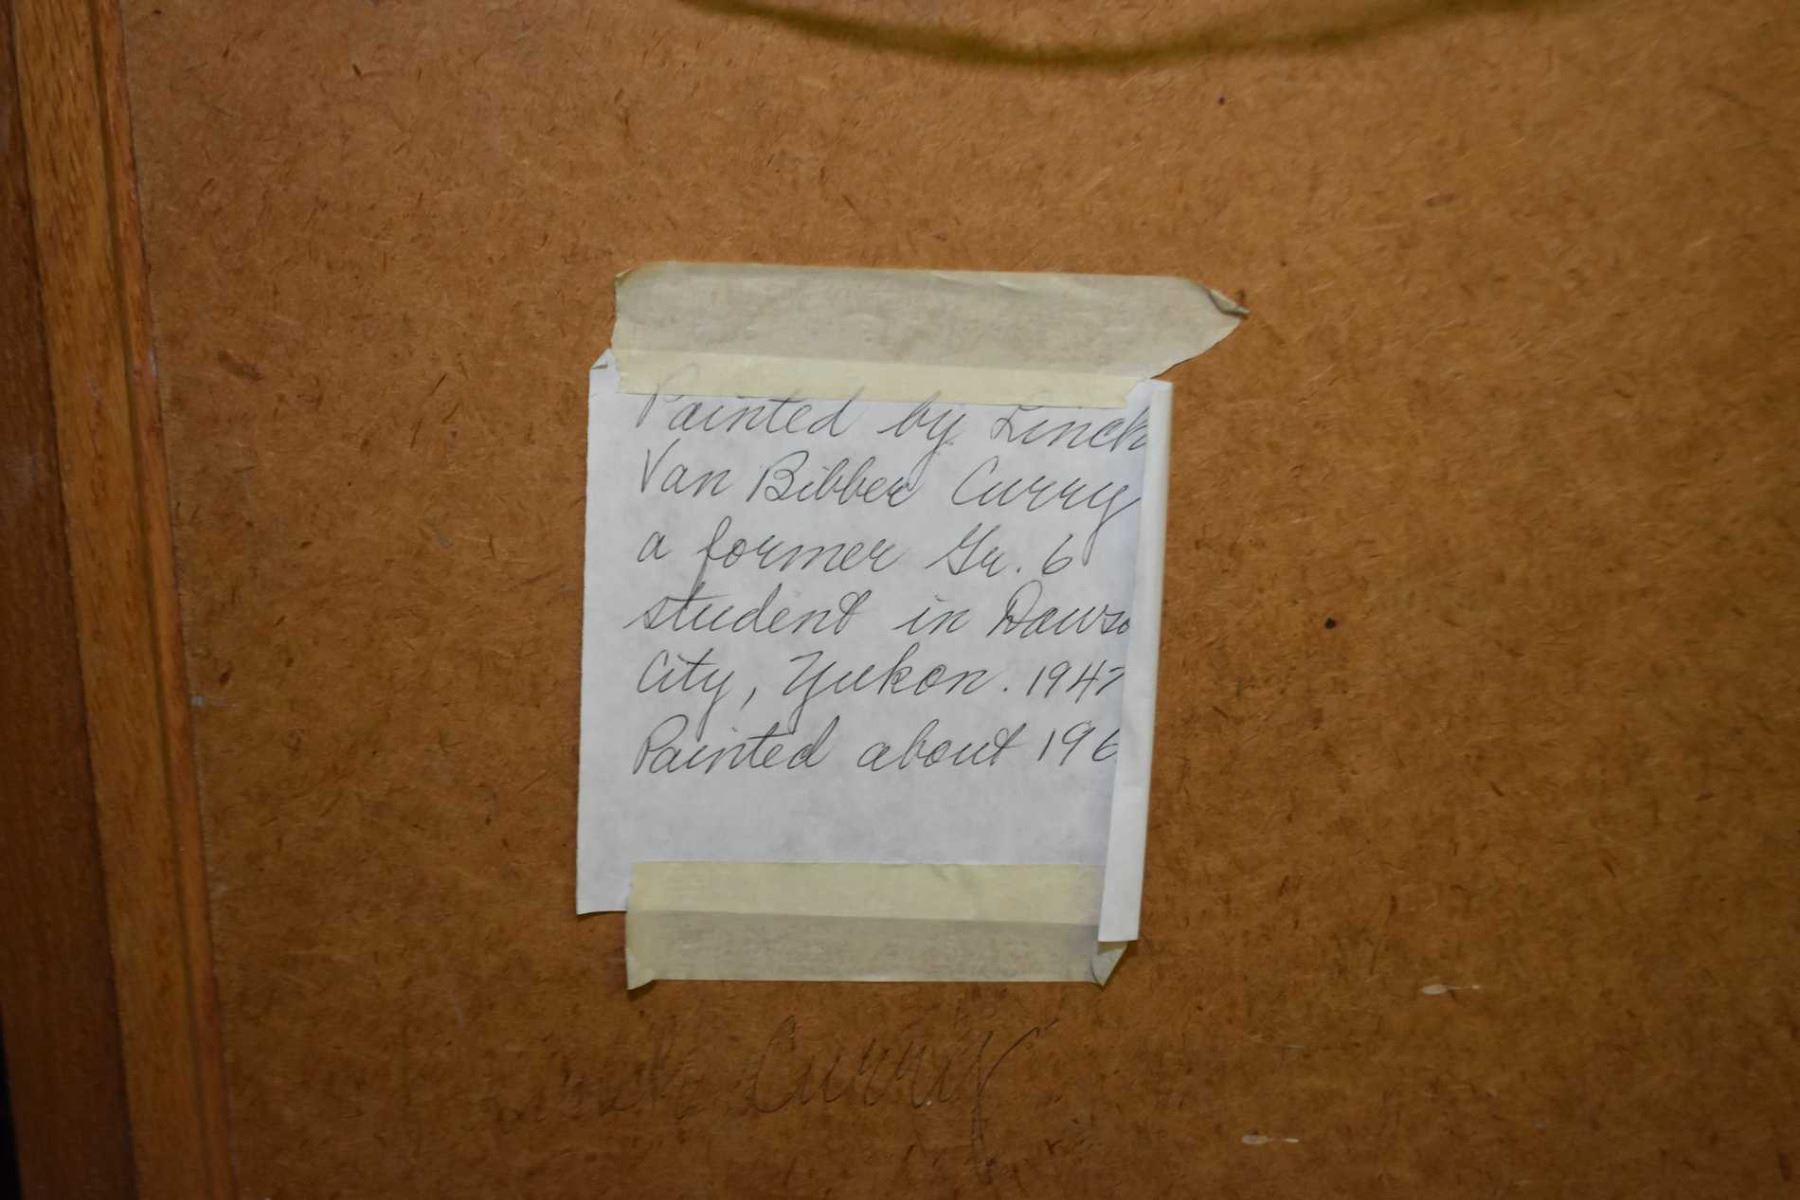 Painted by Linch
Van Bibber Curry
a former Gr. 6
student in Dawso
City, Yukon. 1947
Painted about 196
Curry